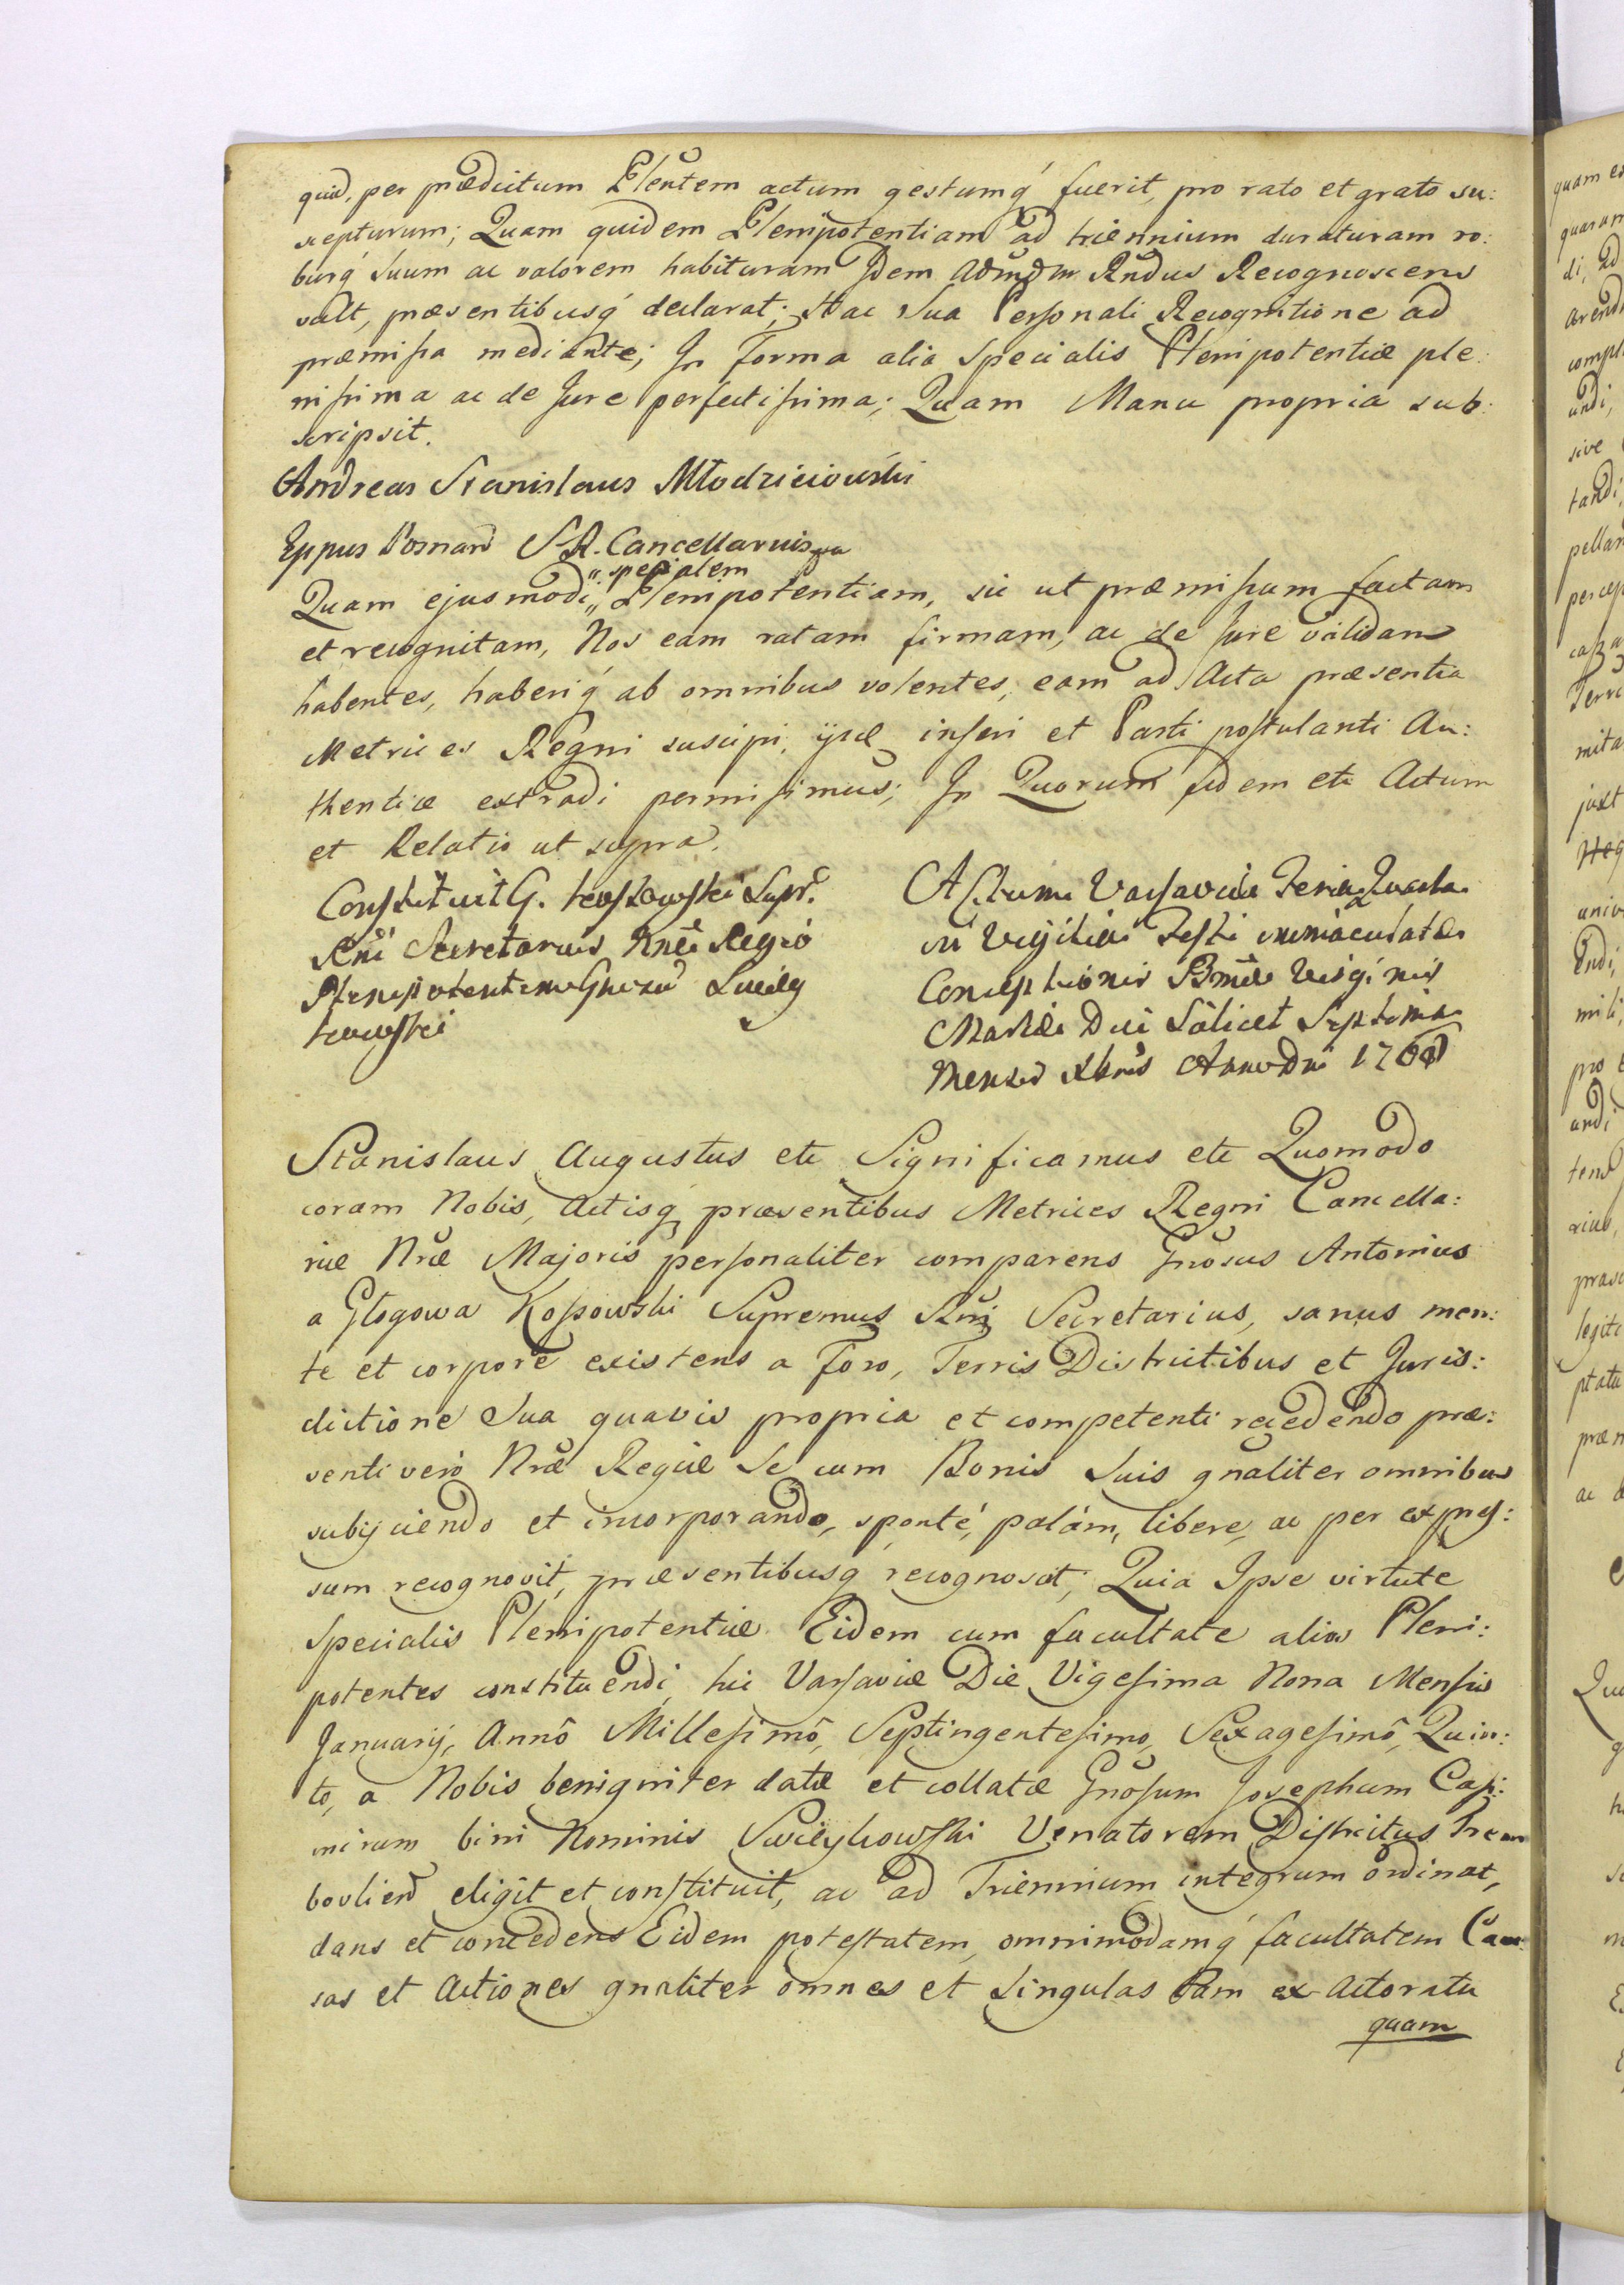 quid, per prædictum Plentem actum gestumq́ fuerit, pro rato et grato su:
scepturum; Quam quidem Plenipotentiam ad triennium duraturam ro:
burq́ suum ac valorem habituram Idem Adm̃dm Rñdus Recognoscens
vult, præsentibusq́ declarat; Hac Sua Personali Recognitione ad
præmissa mediante; In Forma alia Specialis Plenipotentiæ ple:
nissima ac de Jure perfectissima; Quam Manu propria sub:
scripsit.
Andreas Stanislaus Młodzieiowski
Eppus Posnan S. R. Cancellarius
specialem
Quam ejusmodi Plenipotentiam, sic ut præmissum factam
et recognitam, Nos eam ratam firmam, ac de Jure validam
habentes, haberiq́ ab omnibus volentes, eam ad Acta præsentia
Metrices Regni suscipi, ijsq inseri et Parti postulanti Au:
thenticæ extradi permisimus; In Quorum fidem etc Actum
et Relatio ut supra.
Constituit G. Kossowski Supr.
Rñi Secretarius Rnẽ Regio
Plenipotentem Gnosũ Swiey
kowski
Actum Varsaviæ Feria Quarta
in Vigilia Festi immaculatæ
Conceptionis Bmæ Virginis
Mariæ Die Scilicet Septima
Mensis Xbris Anno Dni 1768
Stanislaus Augustus etc Significamus etc Quomodo
coram Nobis, Actisq præsentibus Metrices Regni Cancella:
riæ Nræ Majoris personaliter comparens Gnosus Antonius
a Głogowa Kossowski Supremus Rñi Secretarius, sanus men:
te et corpore existens a Foro, Terris Districtibus et Juris:
dictione Sua quavis propria et competenti recedendo præ:
senti vero Nræ Regiæ Se cum Bonis Suis gnaliter omnibus
subijciendo et incorporando, sponté, palám, libere, ac per expres:
sum recognovit, præsentibusq recognoscit; Quia Ipse virtute
Specialis Plenipotentiæ Eidem cum facultate alios Pleni:
potentes constituendi, hic Varsaviæ Die Vigesima Nona Mensis
Januarij, Annô Millesimô, Septingentesimo, Sexagesimô, Quin:
to, a Nobis benigniter datæ et collatæ Gnosum Josephum Casi:
mirum bini Nominis Swieykowski Venatorem Districtus Trem
bovlien eligit et constituit, ac ad Triennium integrum ordinat,
dans et concedens Eidem potestatem, omnimodamq́ facultatem Cau:
sas et Actiones gnaliter omnes et singulas tam ex Actoratu
quam